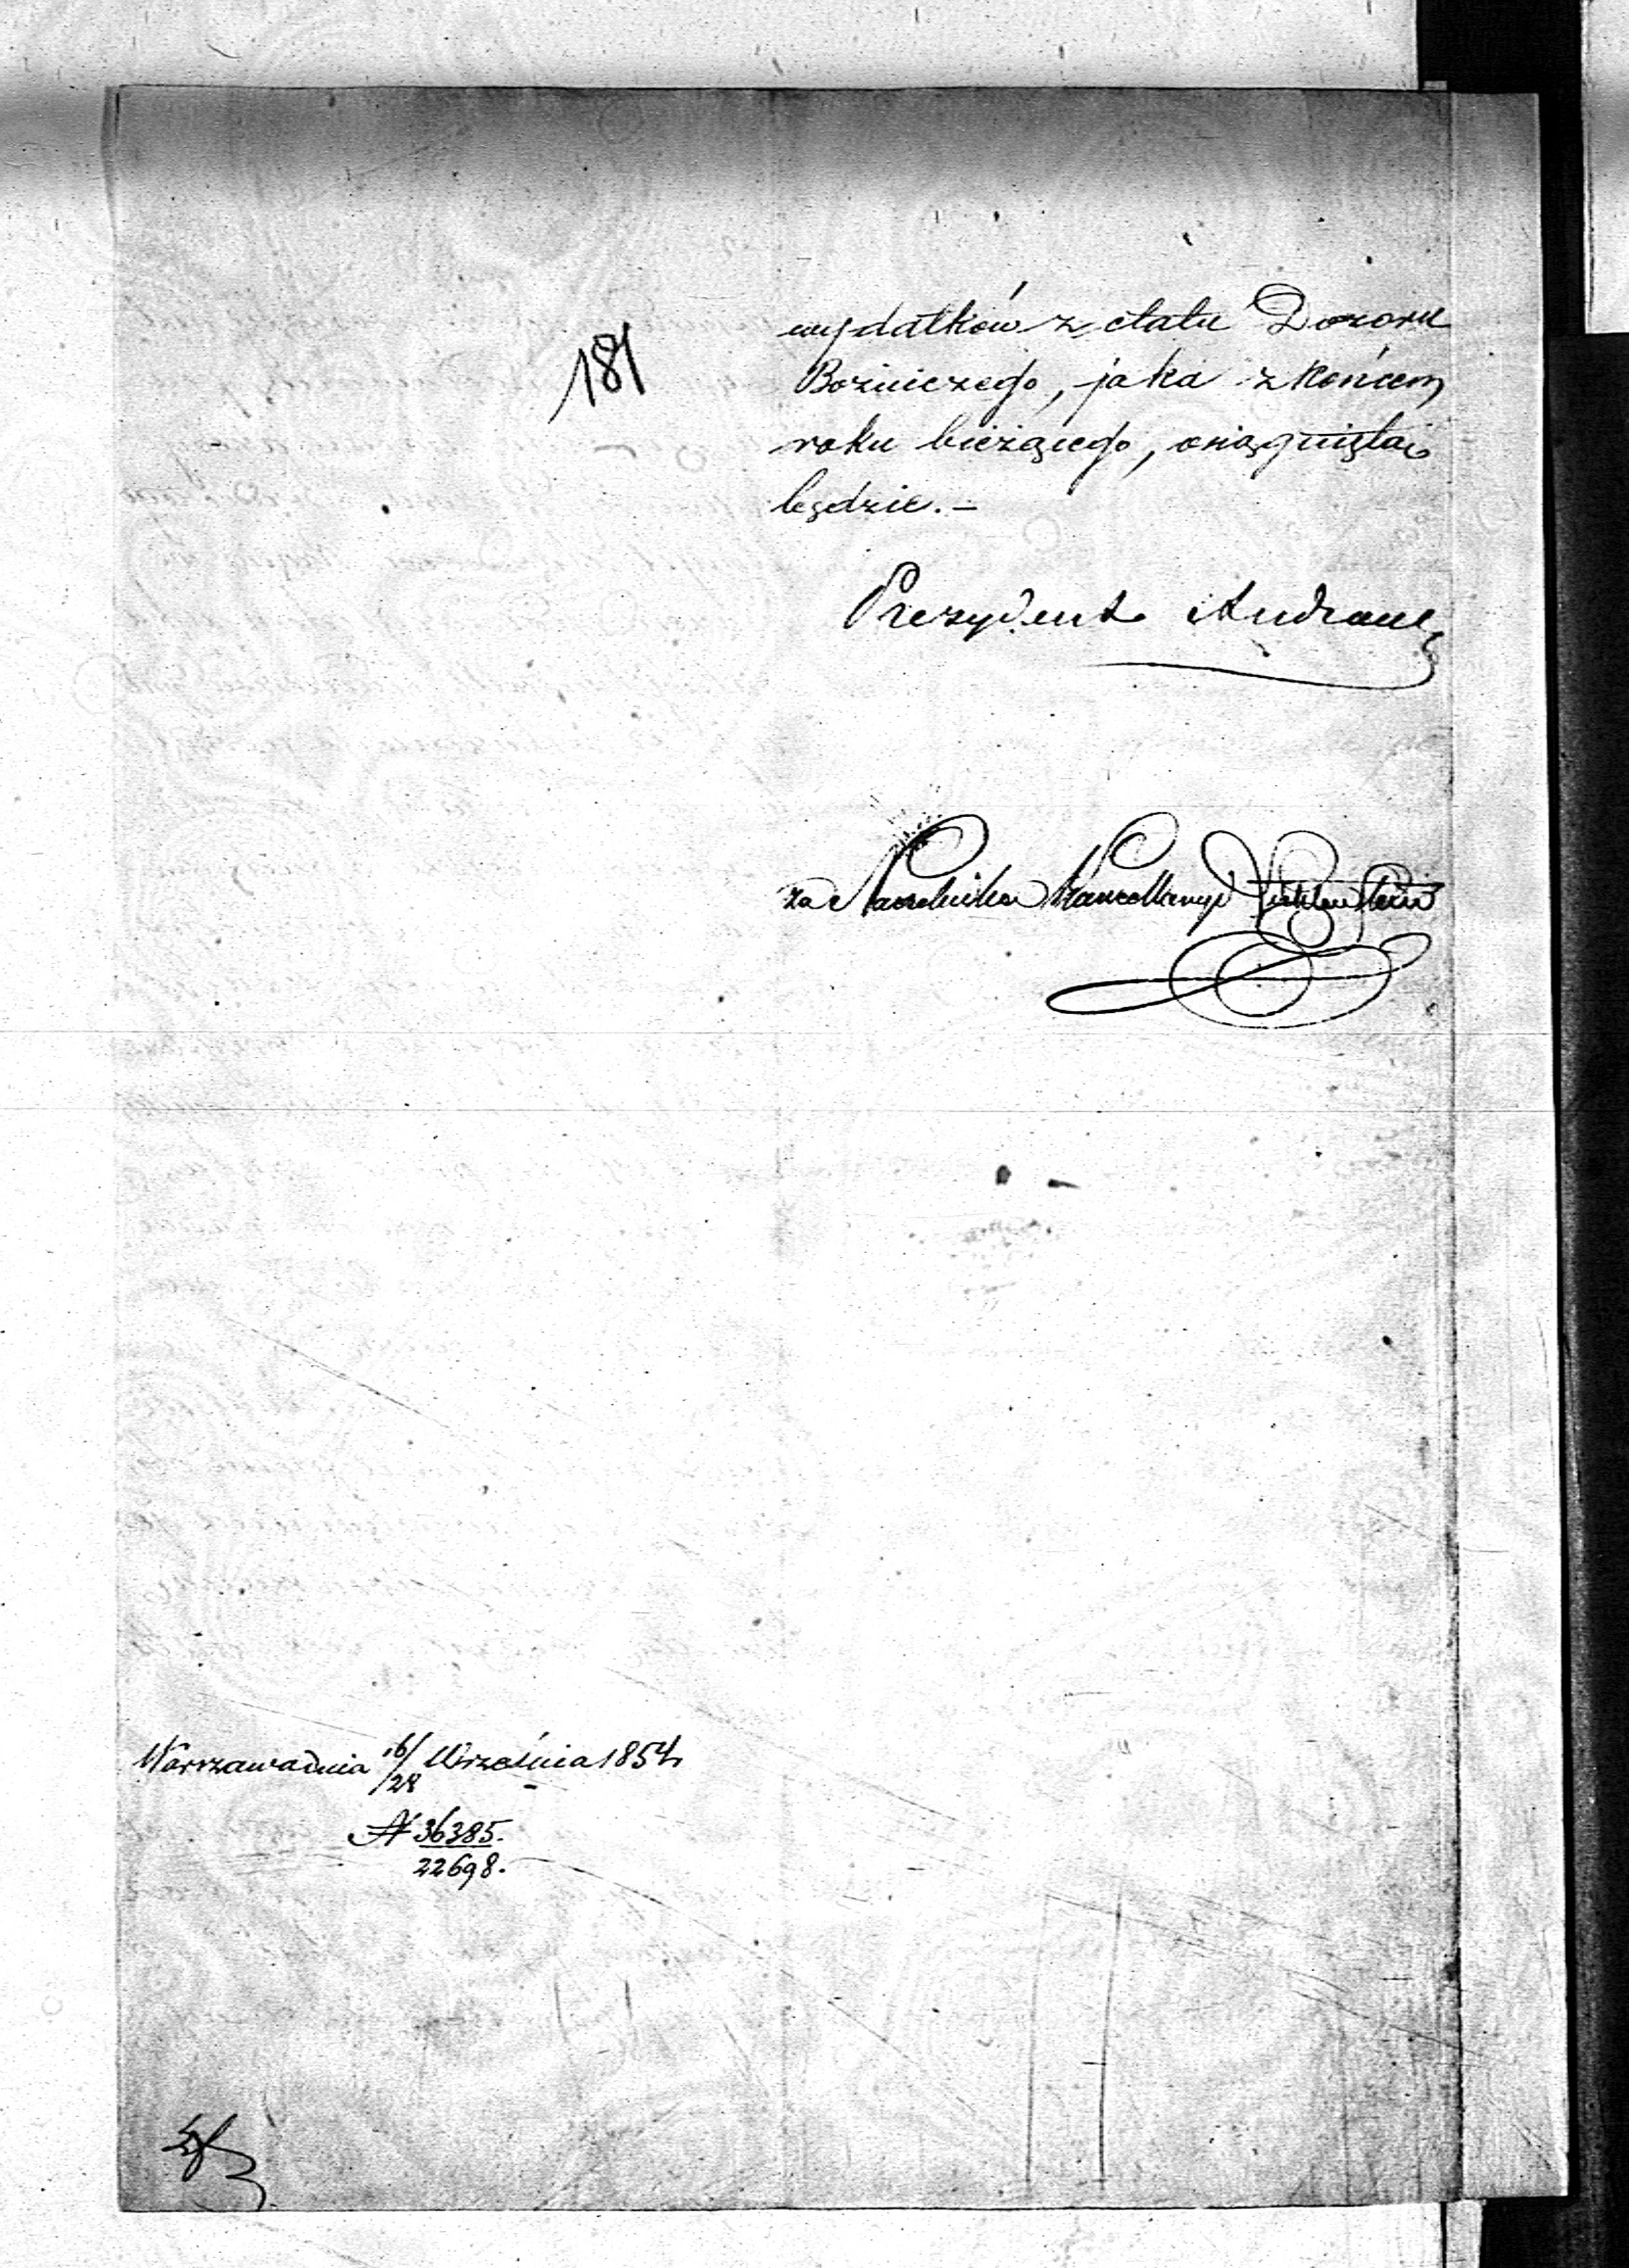 181
wydatków z etatu Dozoru
Bożniczego, jaka z końcem
roku bieżącego, osiągniętą
będzie.—
Prezydent Andrault
za Naczelnika Kancellaryi
Warszawa dnia 16/28 Września 1854
N 36385.
22698.